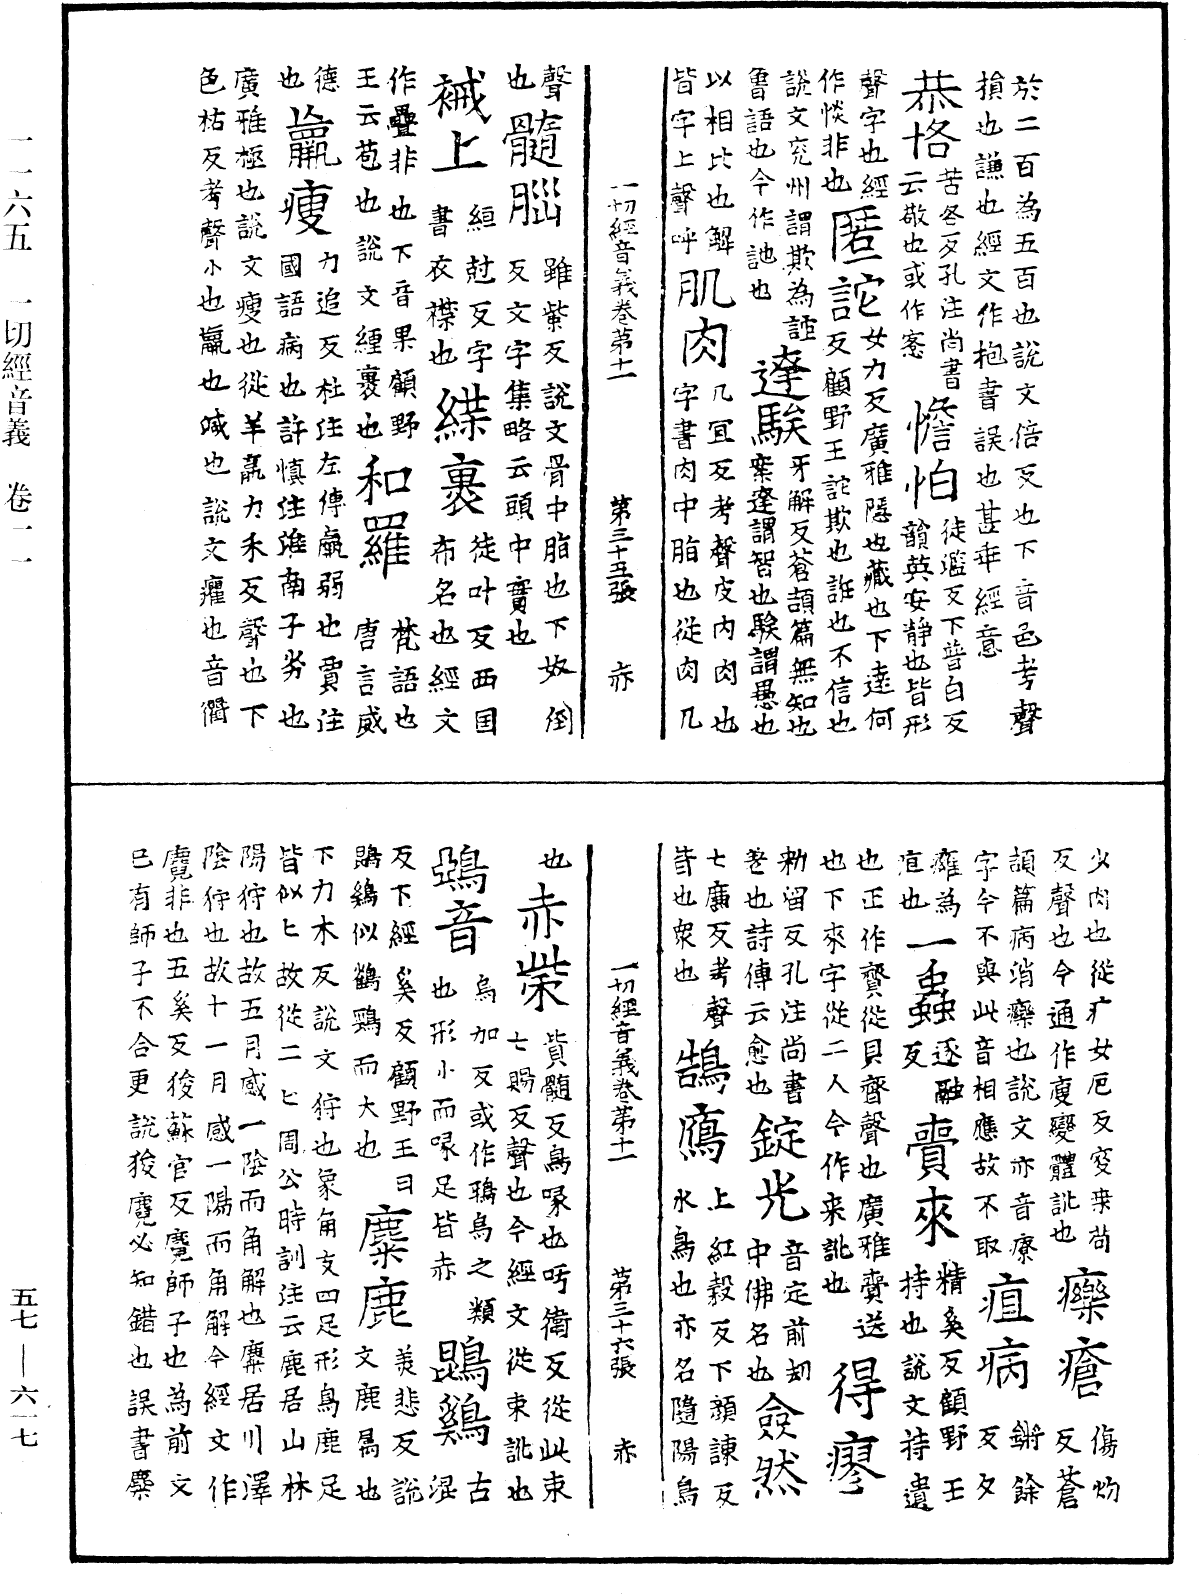 於二百為五百也說文倍反也下音邑考聲
損也謙也經文作挹書誤也甚乖經意
恭恪
苦各反孔注尚書
云敬也或作愙
憺怕
徒濫反下普白反
韻英安靜也皆形
聲字也經
作惔非也
匿詑
女力反廣雅隱也藏也下達何
反顧野王詑欺也誑也不信也
說文兖州謂欺為詑
魯語也今作訑也
達騃
牙解反蒼頡篇無知也
案達謂智也騃謂愚也
以相比也解
皆字上聲呼
肌肉
几冝反考聲皮內肉也
字書肉中脂也從肉几
一切經音義卷第十一 第三十五張 赤
聲
也
髓腦
雖紫反說文骨中脂也下奴倒
反文字集略云頭中寶也
裓上
絙尅反字
書衣襟也
緤裹
徒叶反西国
布名也經文
作疊非也下音果顧野
王云苞也說文纏裹也
和羅
梵語也
唐言威
德
也
羸瘦
力追反杜注左傳羸弱也賈注
國語病也許慎注淮南子劣也
廣雅極也說文瘦也從羊羸力禾反聲也下
色枯反考聲小也羸也也說文癯也音衢
少肉也從疒女厄反叜苟
反聲也今通作瘦變體訛也
瘡
傷灼
反蒼
頡篇病消也說文亦音療
字今不與此音相應故不取
疽病
餘
反
癰為
疽也
一蟲
逐融
反
賷來
精奚反顧野王
持也說文持遺
也正作賷從貝齊聲也廣雅賷送
也下來字從二人今作来訛也
得瘳
勑留反孔注尚書
差也詩傳云愈也
錠光
音定前刼
中佛名也
僉然
七廉反考聲
皆也衆也
鵠鴈
上紅穀反下顏諫反
水鳥也亦名隨陽鳥
一切經音義卷第十一 第三十六張 赤
也
赤
貲髓反鳥喙也衛反從此束
七賜反聲也今經文從束訛也
鵶音
烏加反或作鴉鳥之類
也形小而喙足皆赤
鵾鷄
古
混
反下經奚反顧野王曰
鵾鷄似鶴鷄而大也
麋鹿
美悲反說
文鹿屬也
下力木反說文狩也象角支四足形鳥鹿足
皆似匕故從二匕周公時訓注云鹿居山林
陽狩也故五月感一陰而角解也麋居川澤
陰狩也故十一月感一陽而角解今經文作
麑非也五奚反狻蘇官反麑師子也為前文
已有師子不合更說狻麑必知錯也誤書麋
一一六五 一切經音義 卷一一
五七——六一七